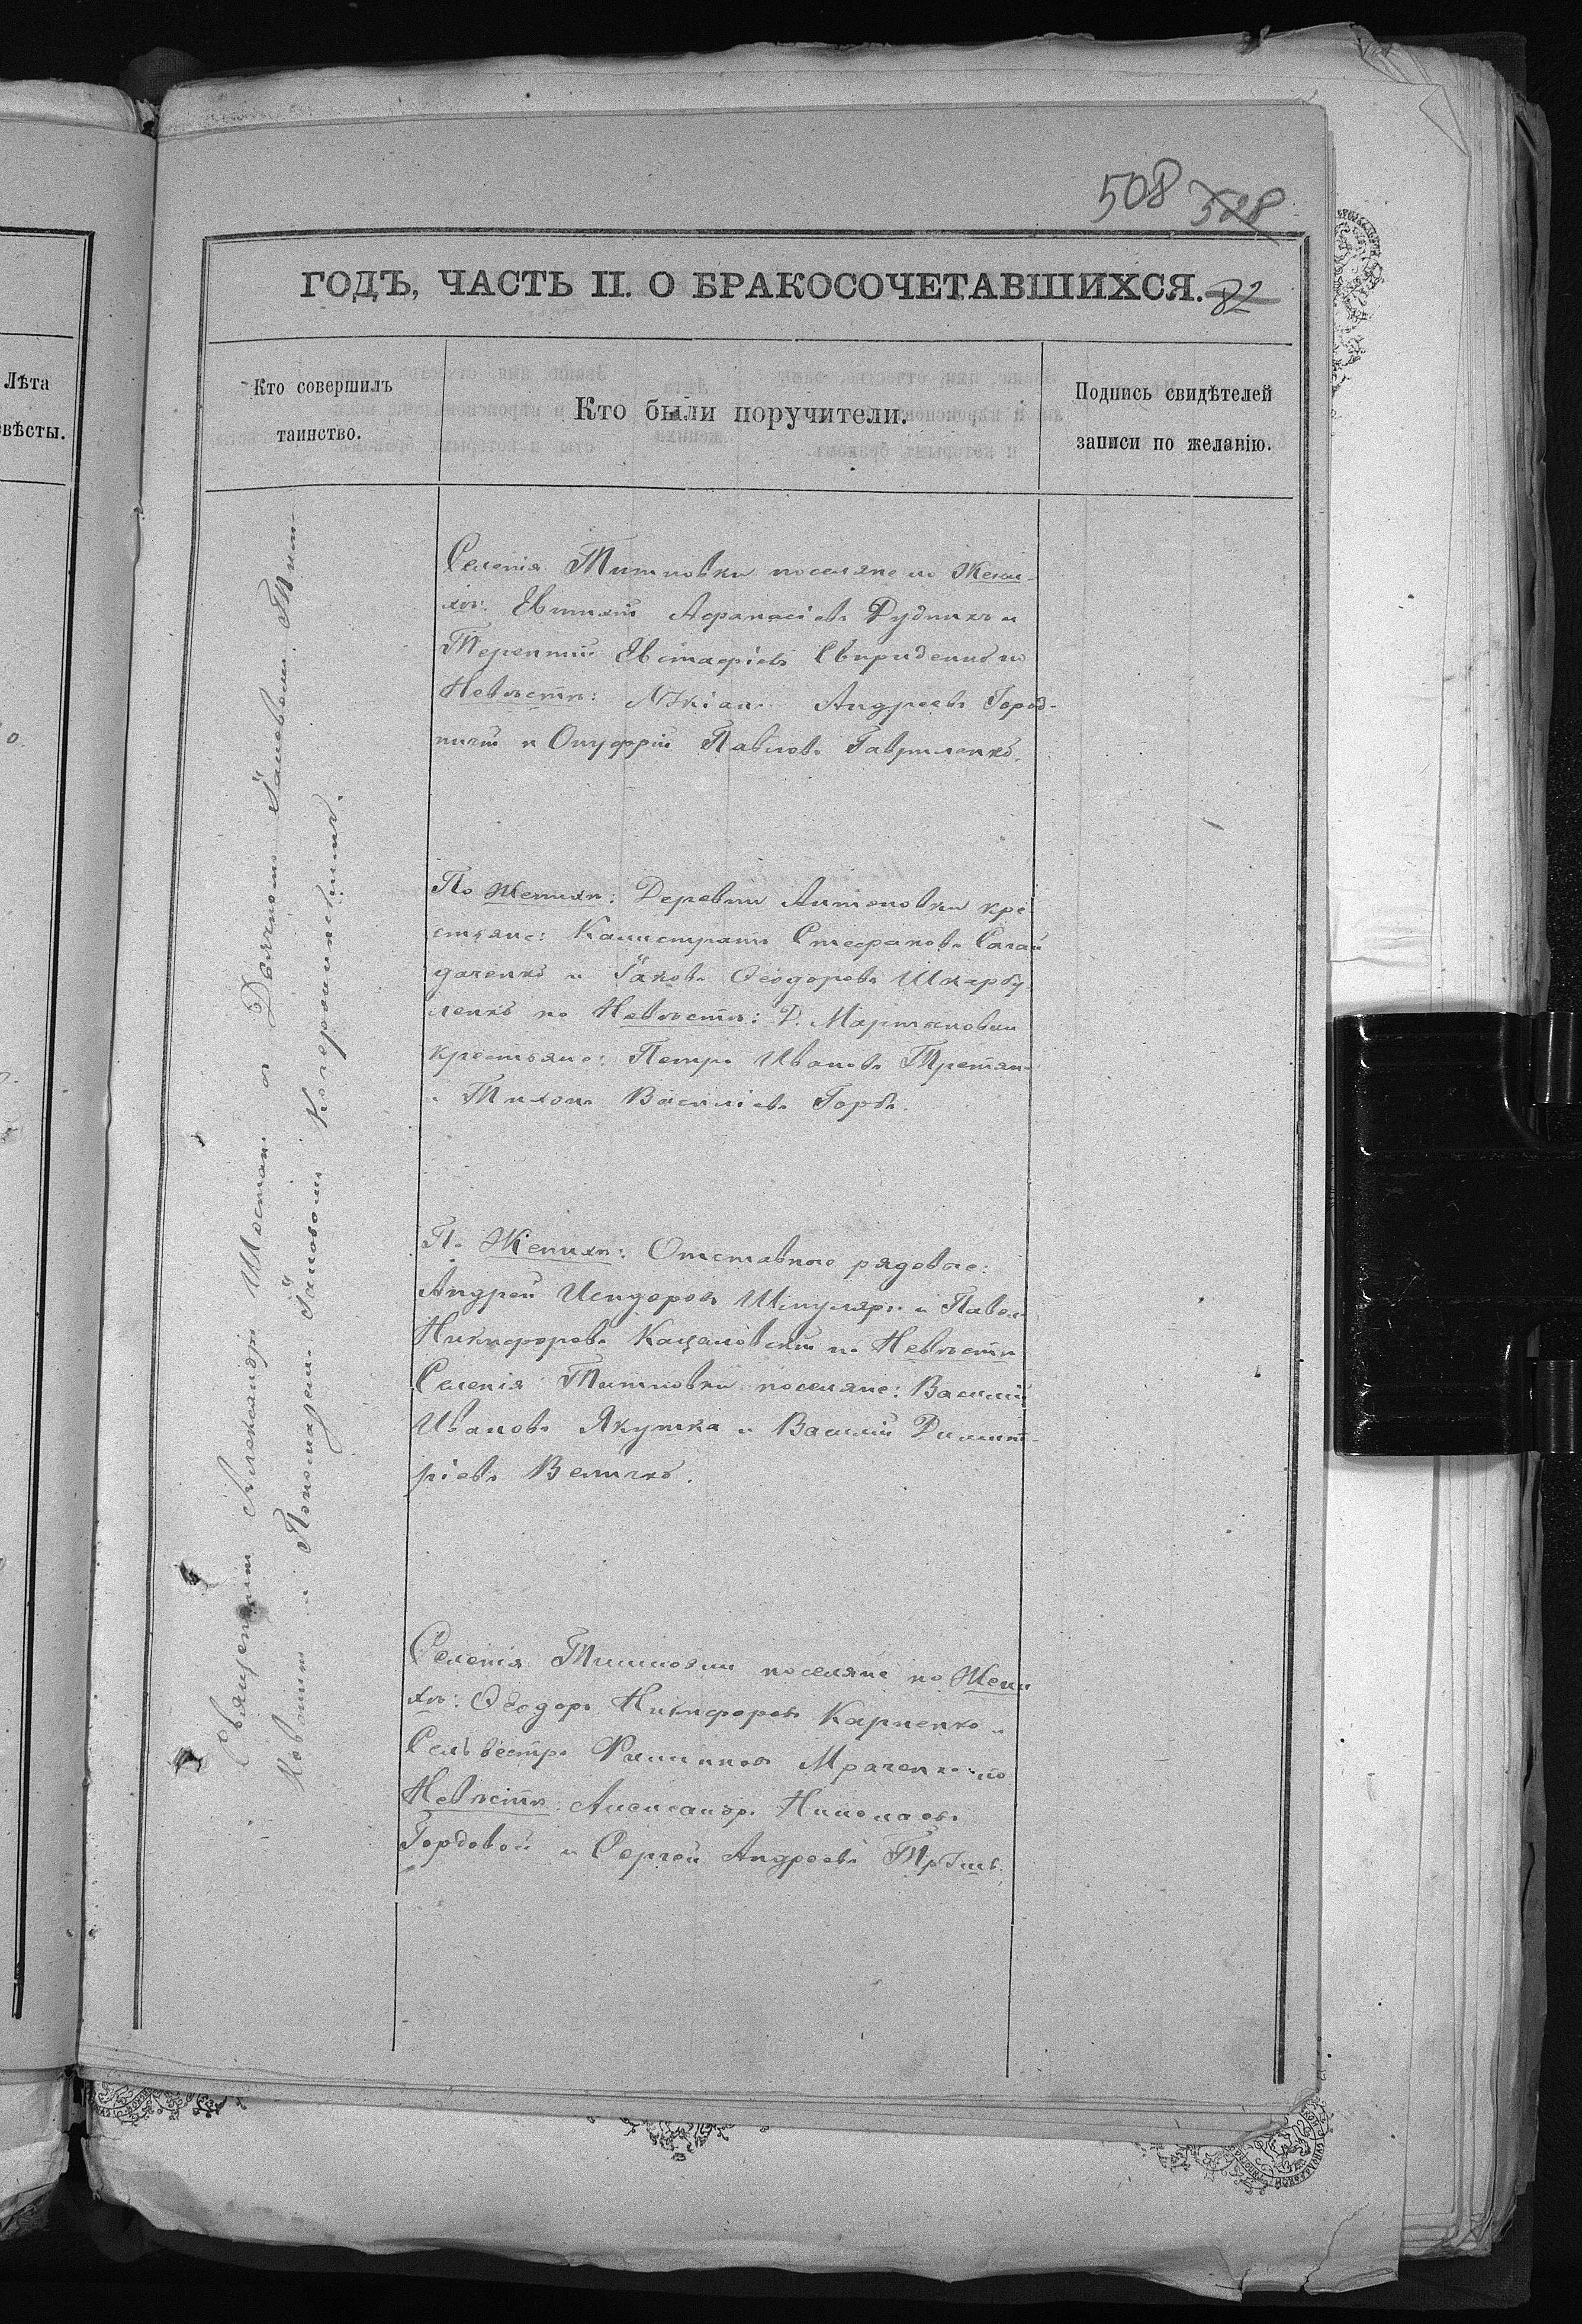 508 528
ГОДЪ, ЧАСТЬ II. О БРАКОСОЧЕТАВШИХСЯ. 82
Лѣта
вѣсты.
Кто совершилъ
таинство.
Кто были поручители.
Подпись свидѣтелей
записи по желанію.
Священникъ Александръ Шостакъ съ Дьячкомъ Іаковомъ
и Пономаремъ Іаковомъ
Селенія Титновки поселяне по Жени-
хѣ: Евтихій Афанасіевъ Рудникъ и
Терентій Евстафіевъ Свириденко по
Невѣстѣ: Андреевъ Город-
ничій и Онуфрій Павловъ Гавриленко.
По Женихѣ: Деревни Антоновки кре
стьяне: Калистратъ Стефановъ Сагай
даченко и Іаковъ Ѳеодоровъ Шкарбу
ленко по Невѣстѣ: Д. Мартыновки
крестьяне: Петръ Ивановъ Третяк
и Тихонъ Василіевъ Горбъ.
По Женихѣ: Отставные рядовые:
Андрей Исидоровъ Шкуляръ и Павелъ
Никифоровъ Кацаловскій по Невѣстѣ
Селенія Титновки поселяне: Василій
Ивановъ Якутка и Василій Димит-
ріевъ Величко.
Селенія Титновки поселяне по Жени
хѣ: Ѳеодоръ Никифоровъ Карпенко и
Сельвестръ Филиповъ Мраченко по
Невѣстѣ: Александръ Николаевъ
Гордовой и Сергей Андреевъ